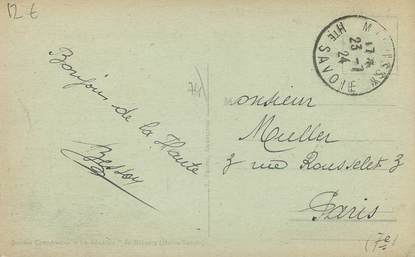 12 €
Bonjour de la Haute
Bessoy
HTE SAVOIE
17
23 - 7
24
74
Monsieur
Muller
3 rue Rousselet 3
Paris
(7e)